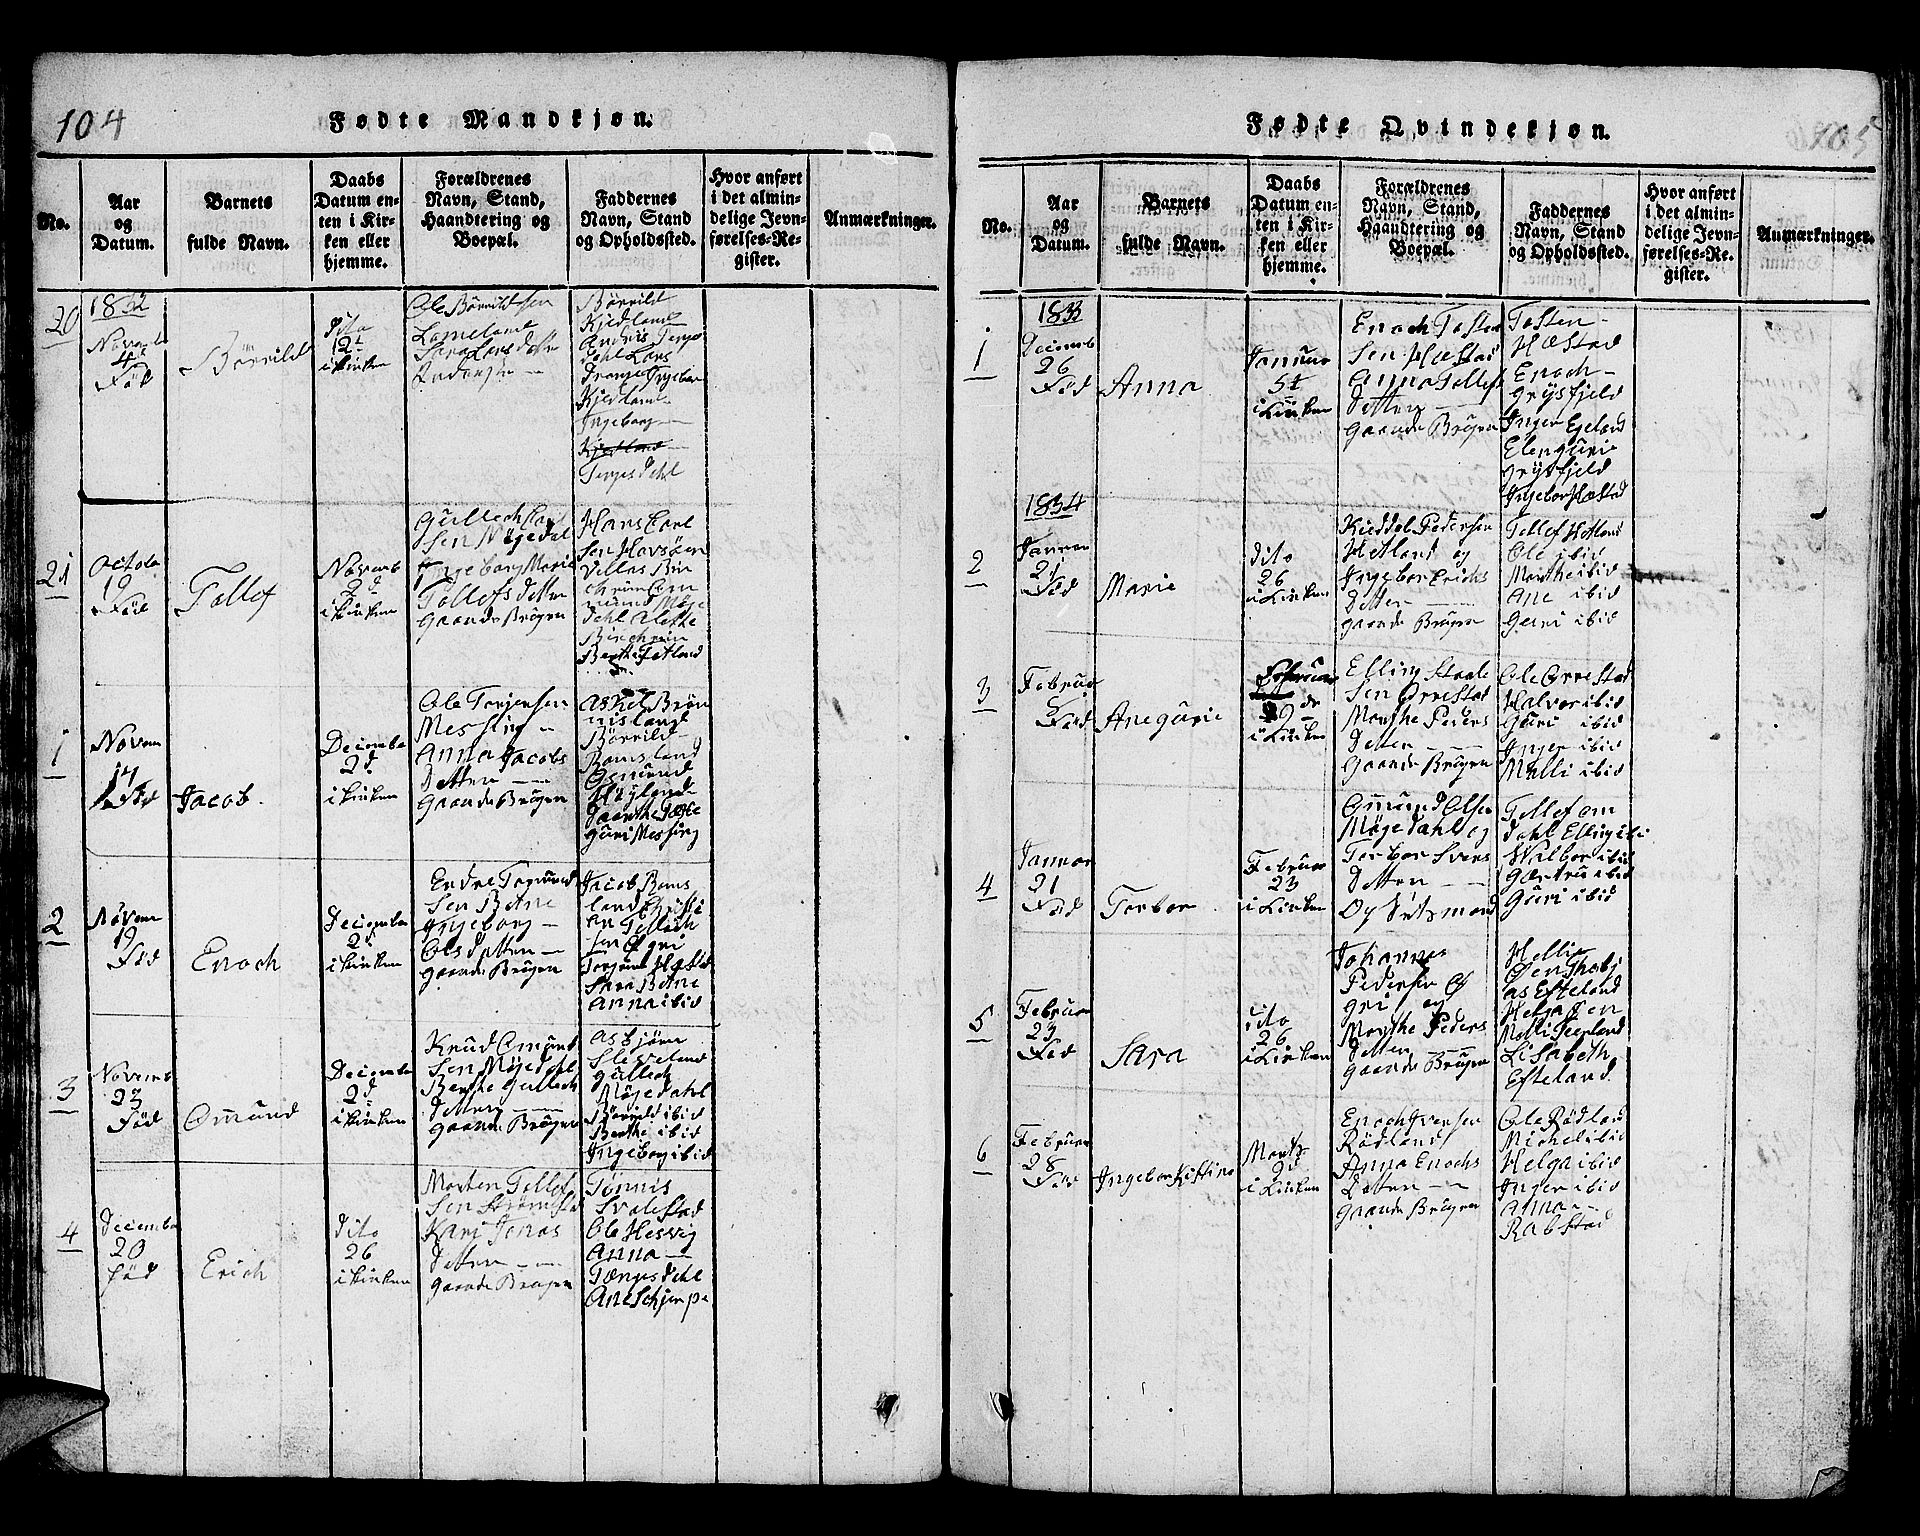 104
Fødte Mandkjøn.
No.
Aar
og
Datum.
Barnets
fulde Navn.
Daabs
Datum en-
ten i Kir-
ken eller
hjemme.
Forældrenes
Navn, Stand,
Haandtering og
Boepæl.
Faddernes
Navn, Stand
og Opholdssted.
Hvor anført
i det almin-
delige Jevn-
førelses-Re-
gister.
Anmærkninger.
20
1832
Novemb
4
Fød
Børrild
dito
2d
i Kirken
Ole Børrildsen
Lomeland
Sara Larsdatter
Børrild
Kjedland
Andris Tergs
dahl Lars
Ingebor
Kjedland
Ingeborg
Kjedland
Tergesdehl
21
Octob
19
Fød
Tollef
Novemb
2d
i Kirken
Gullech Carl
Sen Møgedal
Ingeborg Marie
Tollefsdetter
Gaande Brøgen
Hans Carl
Sen Havsöen
Villas Bir
Möje
dehl Alette
Berthe Tetland
1
Novem
14
Fød
Jacob.
Decemb
2d
i Kirken
Ole Torjensen
Messing
Anna Jacobs
Detter
Gaande Brøgen
Askel Brøn
nisland
Børrild
Romsland
Osmund
Høyland
Guri Messing
2
Novem
19
Fød
Enoch
Decemb
2d
i Kirken
Endre Tormund
Sen Betne
Ingeborg
Olsdetter
Gaande Brøgen
Jacob Roms
land Christi
en Tollich
sen Øgri
Torjend Hestad
Sara Betne
Anna ibid
3
Novemb
23
Fød
Omund
Decemb
2d
i Kirken
Knud Omund
Sen Møjedehl
Berthe Gullech
detter
Gaande Brøgen
Asbjörn
Slesveland
Gullech
Møjedahl
Børrild ibid
Berthe ibid
Ingeborg ibid
4
Decemb
20
Fød
Erich
dito
26
i Kirken
Morten Tollef
Sen Skjørestad
Kari Tonas
detter
Gaande Brøgen
Tönnis
Svalestad
Ole Hesvig
Anna
Tængesdehl
Ane Schjerpe
105
Fødte Qvindekjøn.
No.
Aar
og
Datum.
Barnets
fulde Navn.
Daabs
Datum en-
ten i Kir-
ken eller
hjemme.
Forældrenes
Navn, Stand,
Haandtering og
Boepæl.
Faddernes
Navn, Stand
og Opholdssted.
Hvor anført
i det almin-
delige Jevn-
førelses-Re-
gister.
Anmærkninger.
1
1833
Decemb
26
Fød
Anna
Januar
5t
i Kirken
Enoch Tosten
Sen Hæstad
Anna Tollefs
Detter
Gaande Brøgen
Tosten
Hæstad
Enoch
Grysfjeld
Inger Egeland
Elengurie
Grysfjeld
Ingebor Hæstad
1834
2
Januar
21
Fød
Marie
dito
26
i Kirken
Kieddel Pedersen
Hetland og
Ingebor Erichs
Detter
Gaande Brøgen
Tollef Hetland
Ole ibid
Marthe ibid
Ane ibid
Guri ibid
3
Februar
5
Fød
Anegurie
Februar
9de
i Kirken
Elling Staale
Sen Ørrestad
Marthe Peders
Detter
Gaande Brøgen
Ole Ørrestad
Halvor ibid
Guri ibid
Inger ibid
Malli ibid
4
Januar
31
Fød
Torbor
Februar
23
i Kirken
Omund Olsen
Møgedahl og
Torbor Svens
Detter
Og Husmand
Tollef om
dahl Elling ibi
Walbor ibid
Gærtru ibid
Guri ibid
5
Februar
23
Fød
Sara
dito
26
i Kirken
Johannes
Pedersen Ø
gri og
Marthe Peders
Detter
Gaande Brøgen
Hellie
Øen Thobj
as Efteland
Helga Øen
Malli Seerland
Lisabeth
Efteland
6
Februar
28
Fød
Ingebor Kistine
Marts
2d
i Kirken
Enoch Iversen
Rödland
Anna Enochs
Detter
Gaande Brøgen
Ole Rödland
Michel ibid
Helga ibid
Inger ibid
Anna
Rabstad